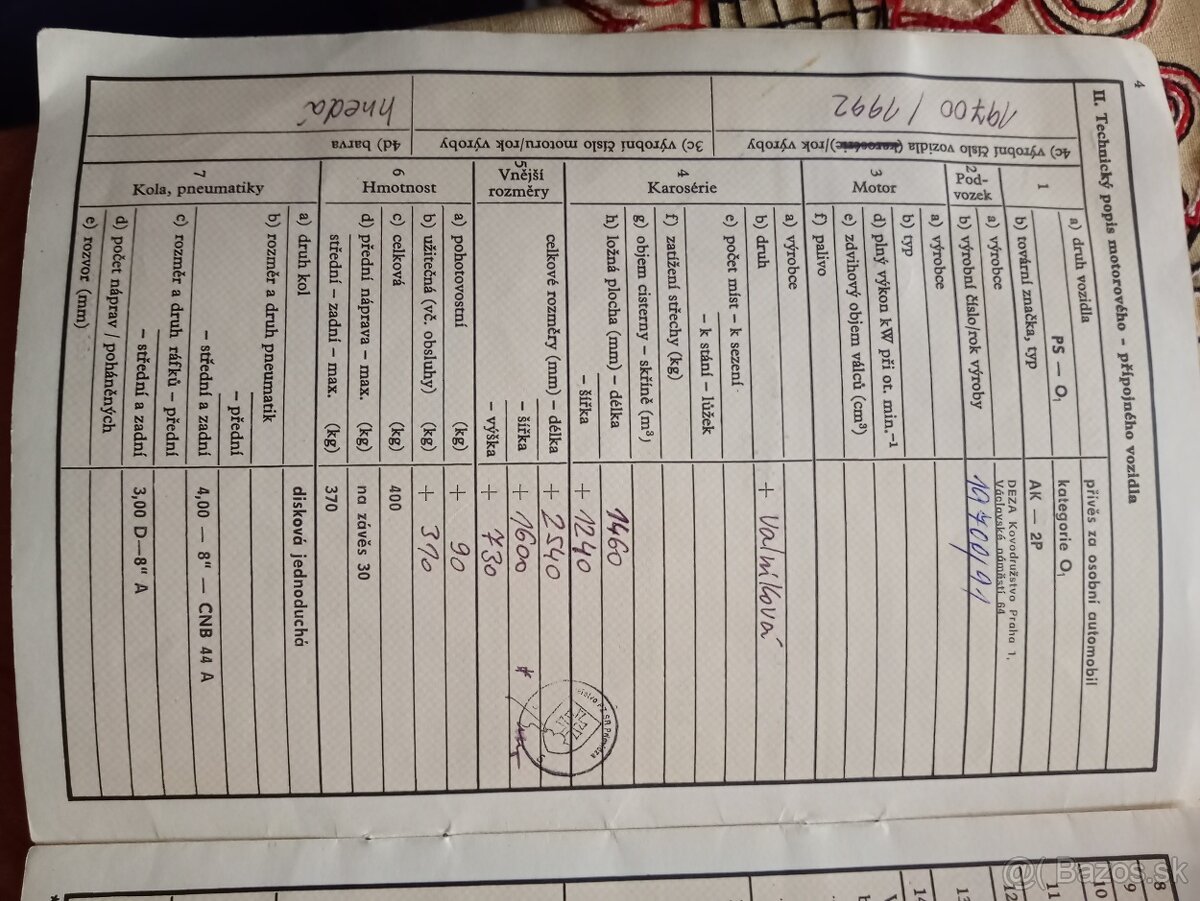 4
II. Technický popis motorového – přípojného vozidla
1
a) druh vozidla
PS — O₁
přívěs za osobní automobil
kategorie O₁
b) tovární značka, typ
AK — 2P
2
Pod-
vozek
a) výrobce
DEZA Kovodružstvo Praha 1,
Václavské náměstí 64
b) výrobní číslo/rok výroby
19700/91
3
Motor
a) výrobce
b) typ
d) plný výkon kW při ot. min.⁻¹
e) zdvihový objem válců (cm³)
f) palivo
4
Karosérie
a) výrobce
b) druh
+ Valníková
e) počet míst – k sezení
– k stání – lůžek
f) zatížení střechy (kg)
g) objem cisterny – skříně (m³)
h) ložná plocha (mm) – délka
1460
– šířka
+ 1240
5
Vnější
rozměry
celkové rozměry (mm) – délka
+ 2540
– šířka
+ 1600
– výška
+ 730
6
Hmotnost
a) pohotovostní (kg)
+ 90
b) užitečná (vč. obsluhy) (kg)
+ 310
c) celková (kg)
400
d) přední náprava – max. (kg)
na závěs 30
střední – zadní – max. (kg)
370
7
Kola, pneumatiky
a) druh kol
disková jednoduchá
b) rozměr a druh pneumatik
– přední
– střední a zadní
4,00 — 8" — CNB 44 A
c) rozměr a druh ráfků – přední
– střední a zadní
3,00 D—8" A
d) počet náprav / poháněných
e) rozvor (mm)
4c) výrobní číslo vozidla (karosérie)/rok výroby
19700 / 1992
3c) výrobní číslo motoru/rok výroby
4d) barva
hnedá
8
9
10
11
12
13
14
@( Bazos.sk